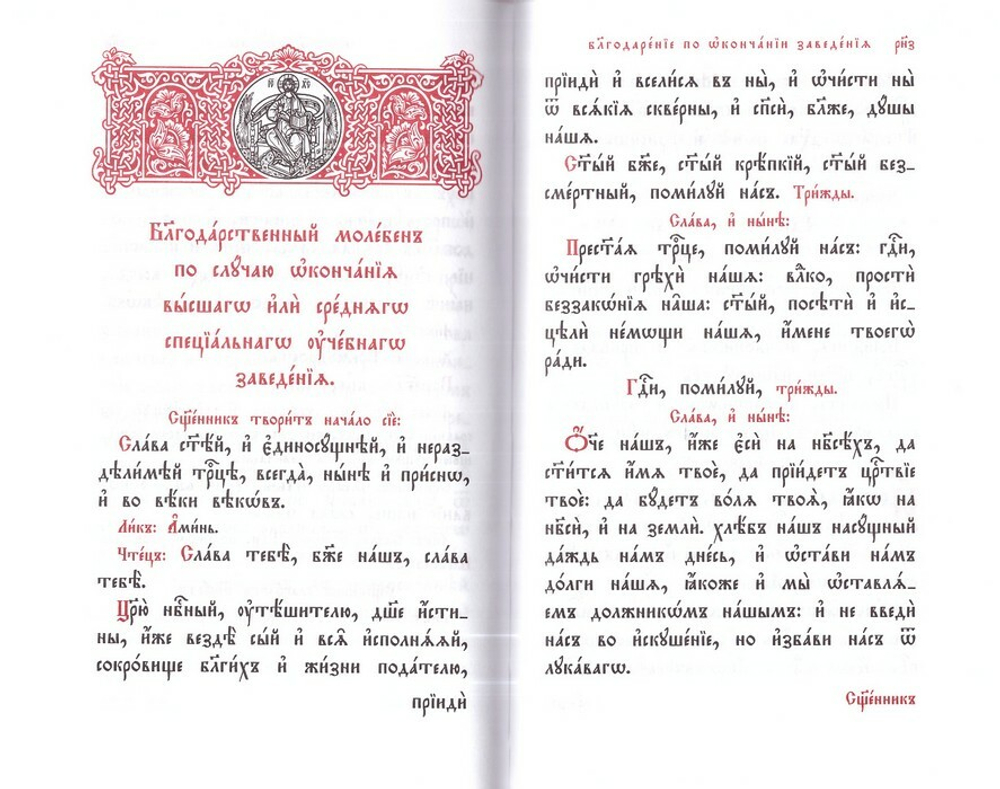 І҃С Х҃С
Бл҃года́рственный моле́бенъ
по слꙋ́чаю ѡ҆конча́нїѧ
вы́сшагѡ и҆лѝ сре́днѧгѡ
спецїа́льнагѡ ᲂу҆че́бнагѡ
заведе́нїѧ.
Сщ҃е́нникъ твори́тъ нача́ло сїѐ:
Сла́ва ст҃ѣ́й, и҆ є҆диносꙋ́щнѣй, и҆ нераз_
дѣли́мѣй трⷪ҇цѣ, всегда̀, ны́нѣ и҆ при́снѡ,
и҆ во вѣ́ки вѣкѡ́въ.
Ли́къ: А҆ми́нь.
Чте́цъ: Сла́ва тебѣ̀, бж҃е на́шъ, сла́ва
тебѣ̀.
Цр҃ю̀ нбⷭ҇ный, ᲂу҆тѣ́шителю, дш҃е и҆́сти_
ны, и҆́же вездѣ̀ сы́й и҆ всѧ̑ и҆сполнѧ́ѧй,
сокро́вище бл҃ги́хъ и҆ жи́зни пода́телю,
прїидѝ
бл҃годаре́нїе по ѡ҆конча́нїи заведе́нїѧ рн҃з
прїидѝ и҆ всели́сѧ въ ны̀, и҆ ѡ҆чи́сти ны̀
ѿ всѧ́кїѧ скве́рны, и҆ сп҃сѝ, бл҃же, дꙋ́шы
на́шѧ.
Ст҃ы́й бж҃е, ст҃ы́й крѣ́пкїй, ст҃ы́й без_
сме́ртный, поми́лꙋй на́съ. Три́жды.
Сла́ва, и҆ ны́нѣ:
Прест҃а́ѧ трⷪ҇це, поми́лꙋй на́съ: гдⷭ҇и,
ѡ҆чи́сти грѣхѝ на́шѧ: влⷣко, простѝ
беззакѡ́нїѧ на̑ша: ст҃ы́й, посѣтѝ и҆ и҆с_
цѣлѝ не́мѡщи на́шѧ, и҆́мене твоегѡ̀
ра́ди.
Гдⷭ҇и, поми́лꙋй, три́жды.
Сла́ва, и҆ ны́нѣ:
Ѻ҆́че на́шъ, и҆́же є҆сѝ на нб҃сѣ́хъ, да
ст҃и́тсѧ и҆́мѧ твоѐ, да прїи́детъ црⷭ҇твїе
твоѐ: да бꙋ́детъ во́лѧ твоѧ̀, ꙗ҆́кѡ на
нб҃сѝ, и҆ на землѝ. хлѣ́бъ на́шъ насꙋ́щный
да́ждь на́мъ дне́сь, и҆ ѡ҆ста́ви на́мъ
до́лги на́шѧ, ꙗ҆́коже и҆ мы̀ ѡ҆ставлѧ́_
емъ должникѡ́мъ на́шымъ: и҆ не введѝ
на́съ во и҆скꙋше́нїе, но и҆зба́ви на́съ ѿ
лꙋка́вагѡ.
Сщ҃е́нникъ